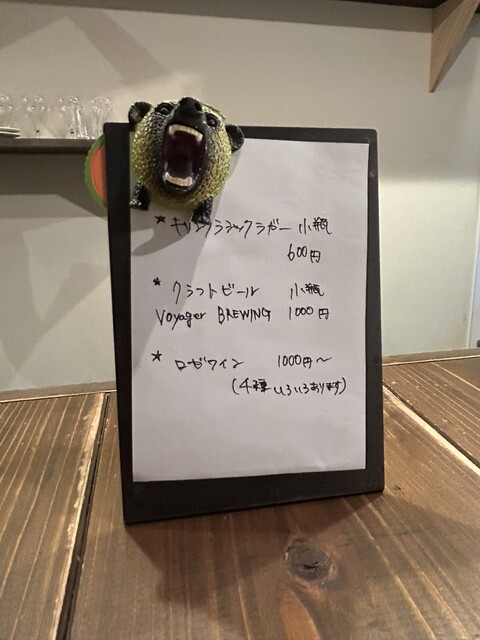 * キリンクラシックラガー 小瓶
600円
* クラフトビール 小瓶
Voyager BREWING 1000円
* ロゼワイン 1000円〜
(4種 いろいろあります)